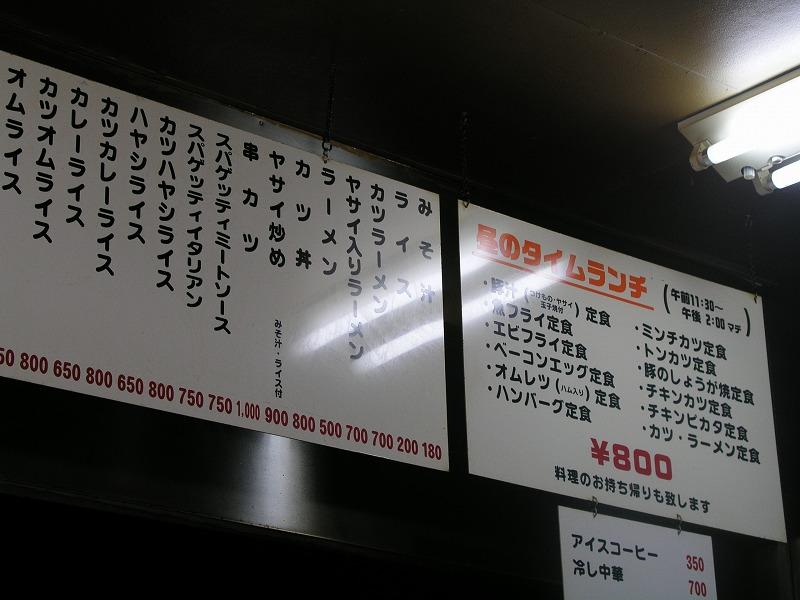 みそ汁
ライス
カツラーメン
ヤサイ入りラーメン
ラーメン
カツ丼
ヤサイ炒め みそ汁・ライス付
串カツ
スパゲッティミートソース
スパゲッティイタリアン
カツハヤシライス
ハヤシライス
カツカレーライス
カレーライス
カツオムライス
オムライス
50 800 650 800 650 800 750 750 1,000 900 800 500 700 700 200 180
昼のタイムランチ (午前11:30〜
午後 2:00マデ)
・豚汁(つけもの・ヤサイ
玉子焼付)定食
・魚フライ定食
・エビフライ定食
・ベーコンエッグ定食
・オムレツ(ハム入り)定食
・ハンバーグ定食
・ミンチカツ定食
・トンカツ定食
・豚のしょうが焼定食
・チキンカツ定食
・チキンピカタ定食
・カツ・ラーメン定食
¥800
料理のお持ち帰りも致します
アイスコーヒー 350
冷し中華 700